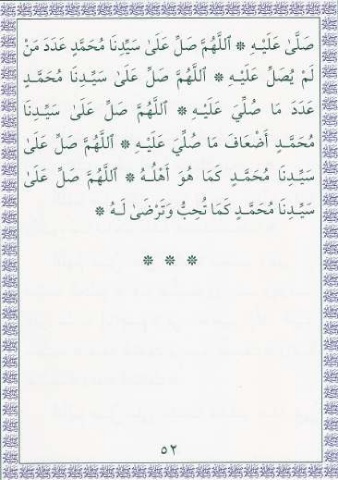 صَلَّىٰ عَلَيْهِ ❊ ٱللَّهُمَّ صَلِّ عَلَىٰ سَيِّدِنَا مُحَمَّدٍ عَدَدَ مَنْ
لَمْ يُصَلِّ عَلَيْهِ ❊ ٱللَّهُمَّ صَلِّ عَلَىٰ سَيِّدِنَا مُحَمَّدٍ
عَدَدَ مَا صُلِّيَ عَلَيْهِ ❊ ٱللَّهُمَّ صَلِّ عَلَىٰ سَيِّدِنَا
مُحَمَّدٍ أَضْعَافَ مَا صُلِّيَ عَلَيْهِ ❊ ٱللَّهُمَّ صَلِّ عَلَىٰ
سَيِّدِنَا مُحَمَّدٍ كَمَا هُوَ أَهْلُهُ ❊ ٱللَّهُمَّ صَلِّ عَلَىٰ
سَيِّدِنَا مُحَمَّدٍ كَمَا تُحِبُّ وَتَرْضَىٰ لَهُ ❊
❊ ❊ ❊
٥٢